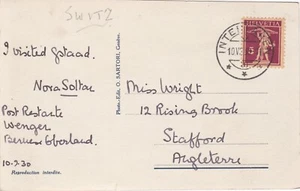 SWITZ
I visited Gstaad.
Nora Soltau
Post Restante
Wenger
Berner Oberland
10.7.30
Reproduction interdite.
Photo-Edit. O. SARTORI, Genève.
HELVETIA
INTE
10.V
Miss Wright
12 Rising Brook
Stafford
Angleterre